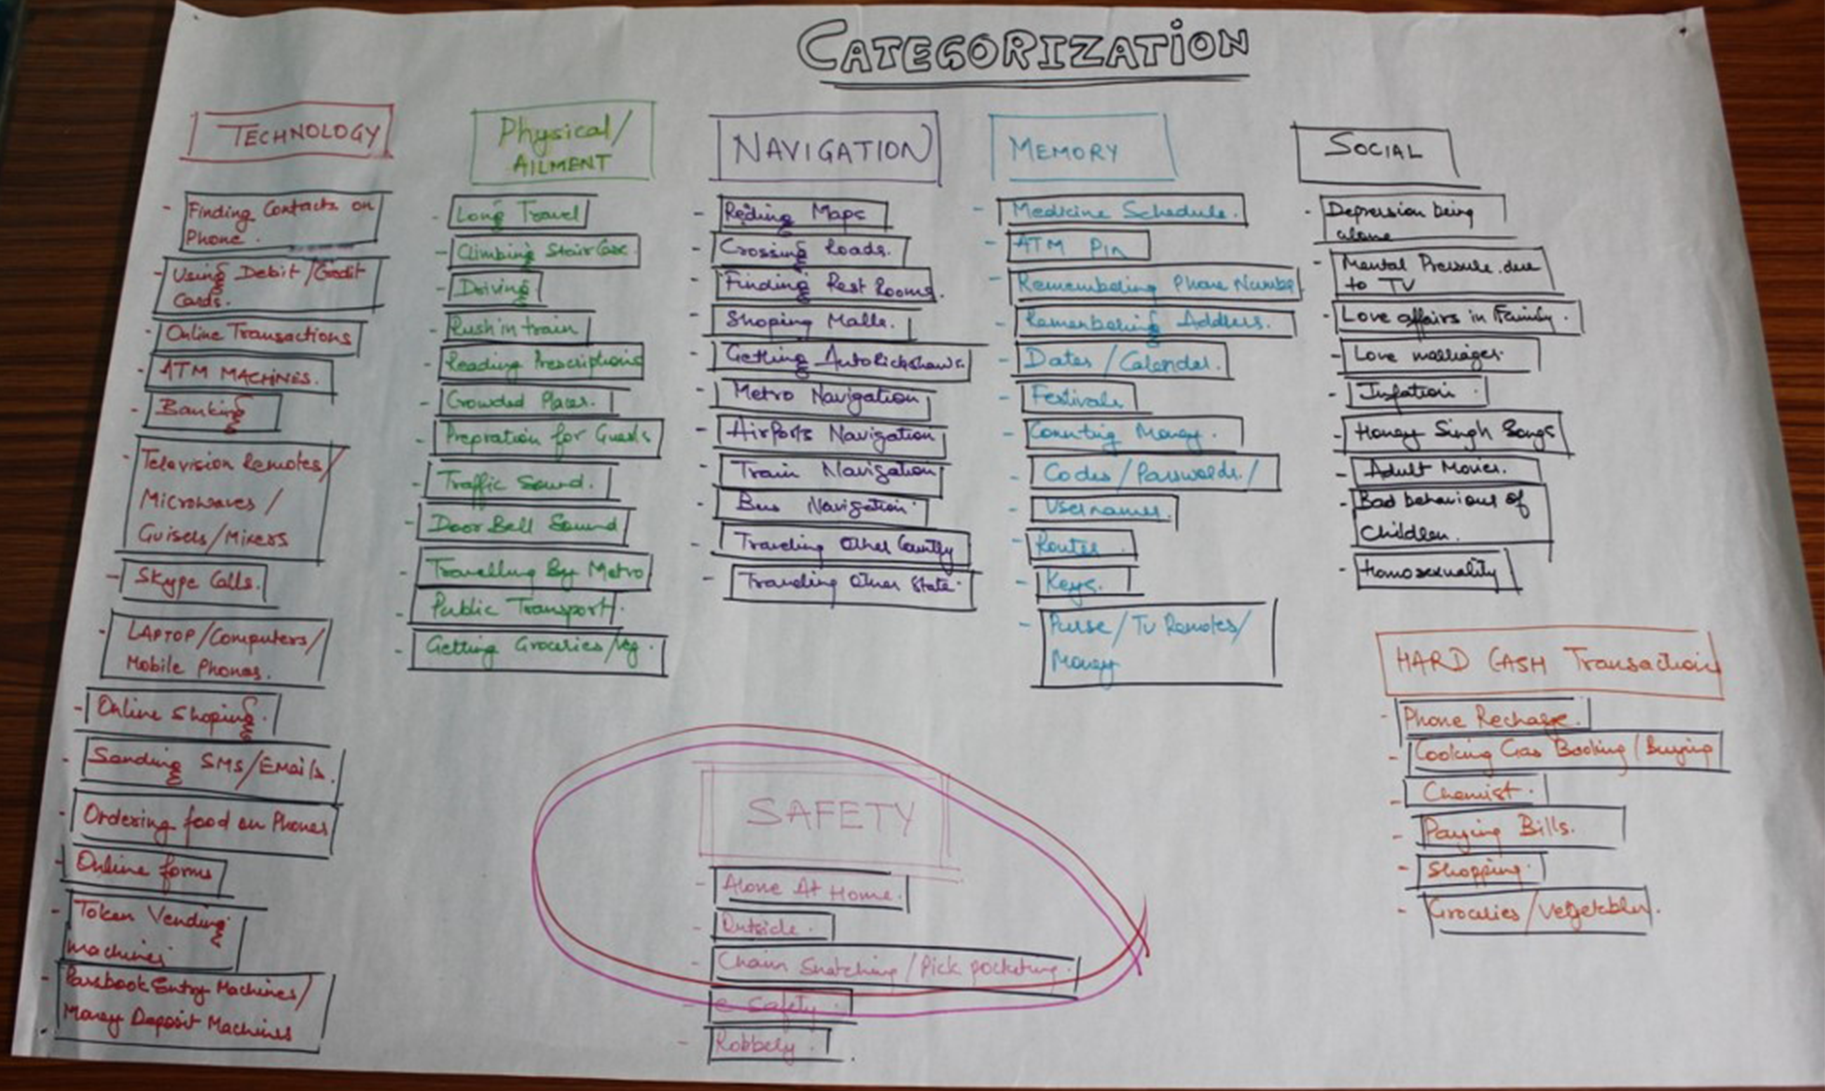 CATEGORIZATION
TECHNOLOGY
- Finding Contacts on
Phone.
- Using Debit/Credit
Cards.
- Online Transactions
- ATM MACHINES.
- Banking
- Television Remotes/
Microwaves/
Guisers/Mixers
- Skype Calls.
- LAPTOP/Computers/
Mobile Phones.
- Online Shoping.
- Sending SMS/EMails.
- Ordering food on Phones
- Online forms
- Token Vending
machines
- Passbook Entry Machines/
Money Deposit Machines
Physical/
AILMENT
- Long Travel
- Climbing StairCase.
- Driving
- Rush in train
- Reading Prescriptions
- Crowded Places.
- Prepration for Guests
- Traffic Sound.
- Door Bell Sound
- Travelling By Metro
- Public Transport.
- Getting Groceries/Veg.
NAVIGATION
- Reding Maps
- Crossing Roads.
- Finding Rest Rooms.
- Shoping Malls.
- Getting AutoRickshaws.
- Metro Navigation
- Airports Navigation
- Train Navigation
- Bus Navigation
- Traveling Other Country
- Traveling Other State.
MEMORY
- Medicine Schedule.
- ATM Pin
- Remembering Phone Number
- Remembering Address.
- Dates/Calendar.
- Festivals
- Counting Money.
- Codes/Passwords/
- Usernames.
- Routes.
- Keys.
- Purse/TV Remotes/
Money
SOCIAL
- Depression being
alone
- Mental Pressure due
to TV
- Love affairs in Family.
- Love marriages.
- Inflation.
- Honey Singh Songs
- Adult Movies.
- Bad behaviour of
Children.
- Homosexuality
HARD CASH Transaction
- Phone Recharge.
- Cooking Gas Booking/Buying
- Chemist.
- Paying Bills.
- Shopping.
- Groceries/Vegetables.
SAFETY
- Alone At Home.
- Outside.
- Chain Snatching/Pick pocketing.
- e Safety.
- Robbery.